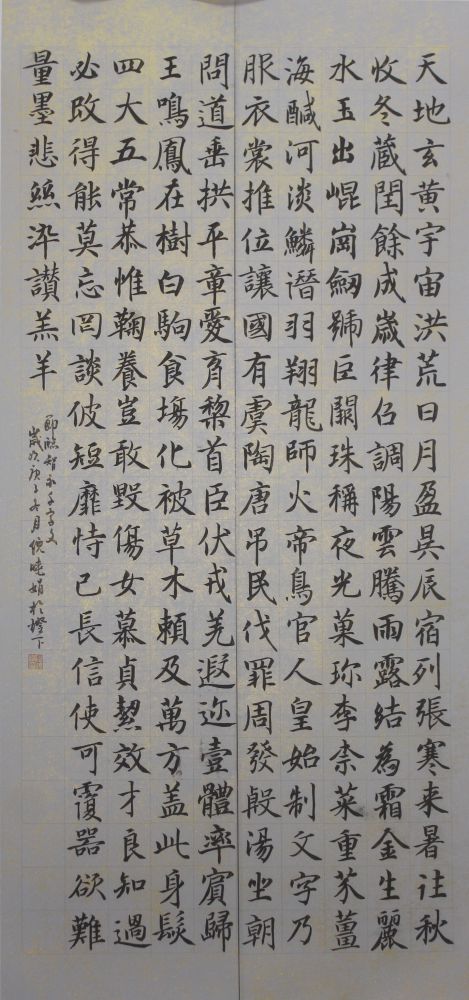 天地玄黃宇宙洪荒日月盈昃辰宿列張寒来暑往秋
收冬蔵閏餘成歲律召調陽雲騰雨露結為霜金生麗
水玉出崐崗劒號巨闕珠稱夜光菓珎李柰菜重芥薑
海醎河淡鱗潛羽翔龍師火帝鳥官人皇始制文字乃
服衣裳推位讓國有虞陶唐吊民伐罪周發殷湯坐朝
問道垂拱平章愛育黎首臣伏戎羌遐迩壹體率賓歸
王鳴鳳在樹白駒食場化被草木賴及萬方盖此身髮
四大五常恭惟鞠養豈敢毀傷女慕貞絜效才良知過
必改得能莫忘罔談彼短靡恃己長信使可覆器欲難
量墨悲絲染讃羔羊
節臨智永千字文
歲次庚子月倪曉娟於燈下